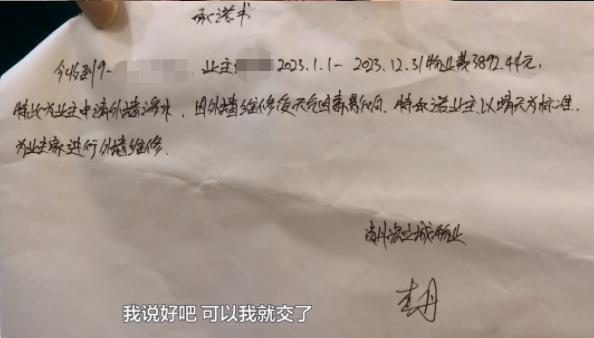 承诺书
今收到9- 业主 2023.1.1-2023.12.31物业费3892.44元,
特此为业主申请外墙渗水,因外墙维修受天气因素影响,特承诺业主以晴天为标准,
为业主家进行外墙维修.
之城物业
我说好吧 可以我就交了